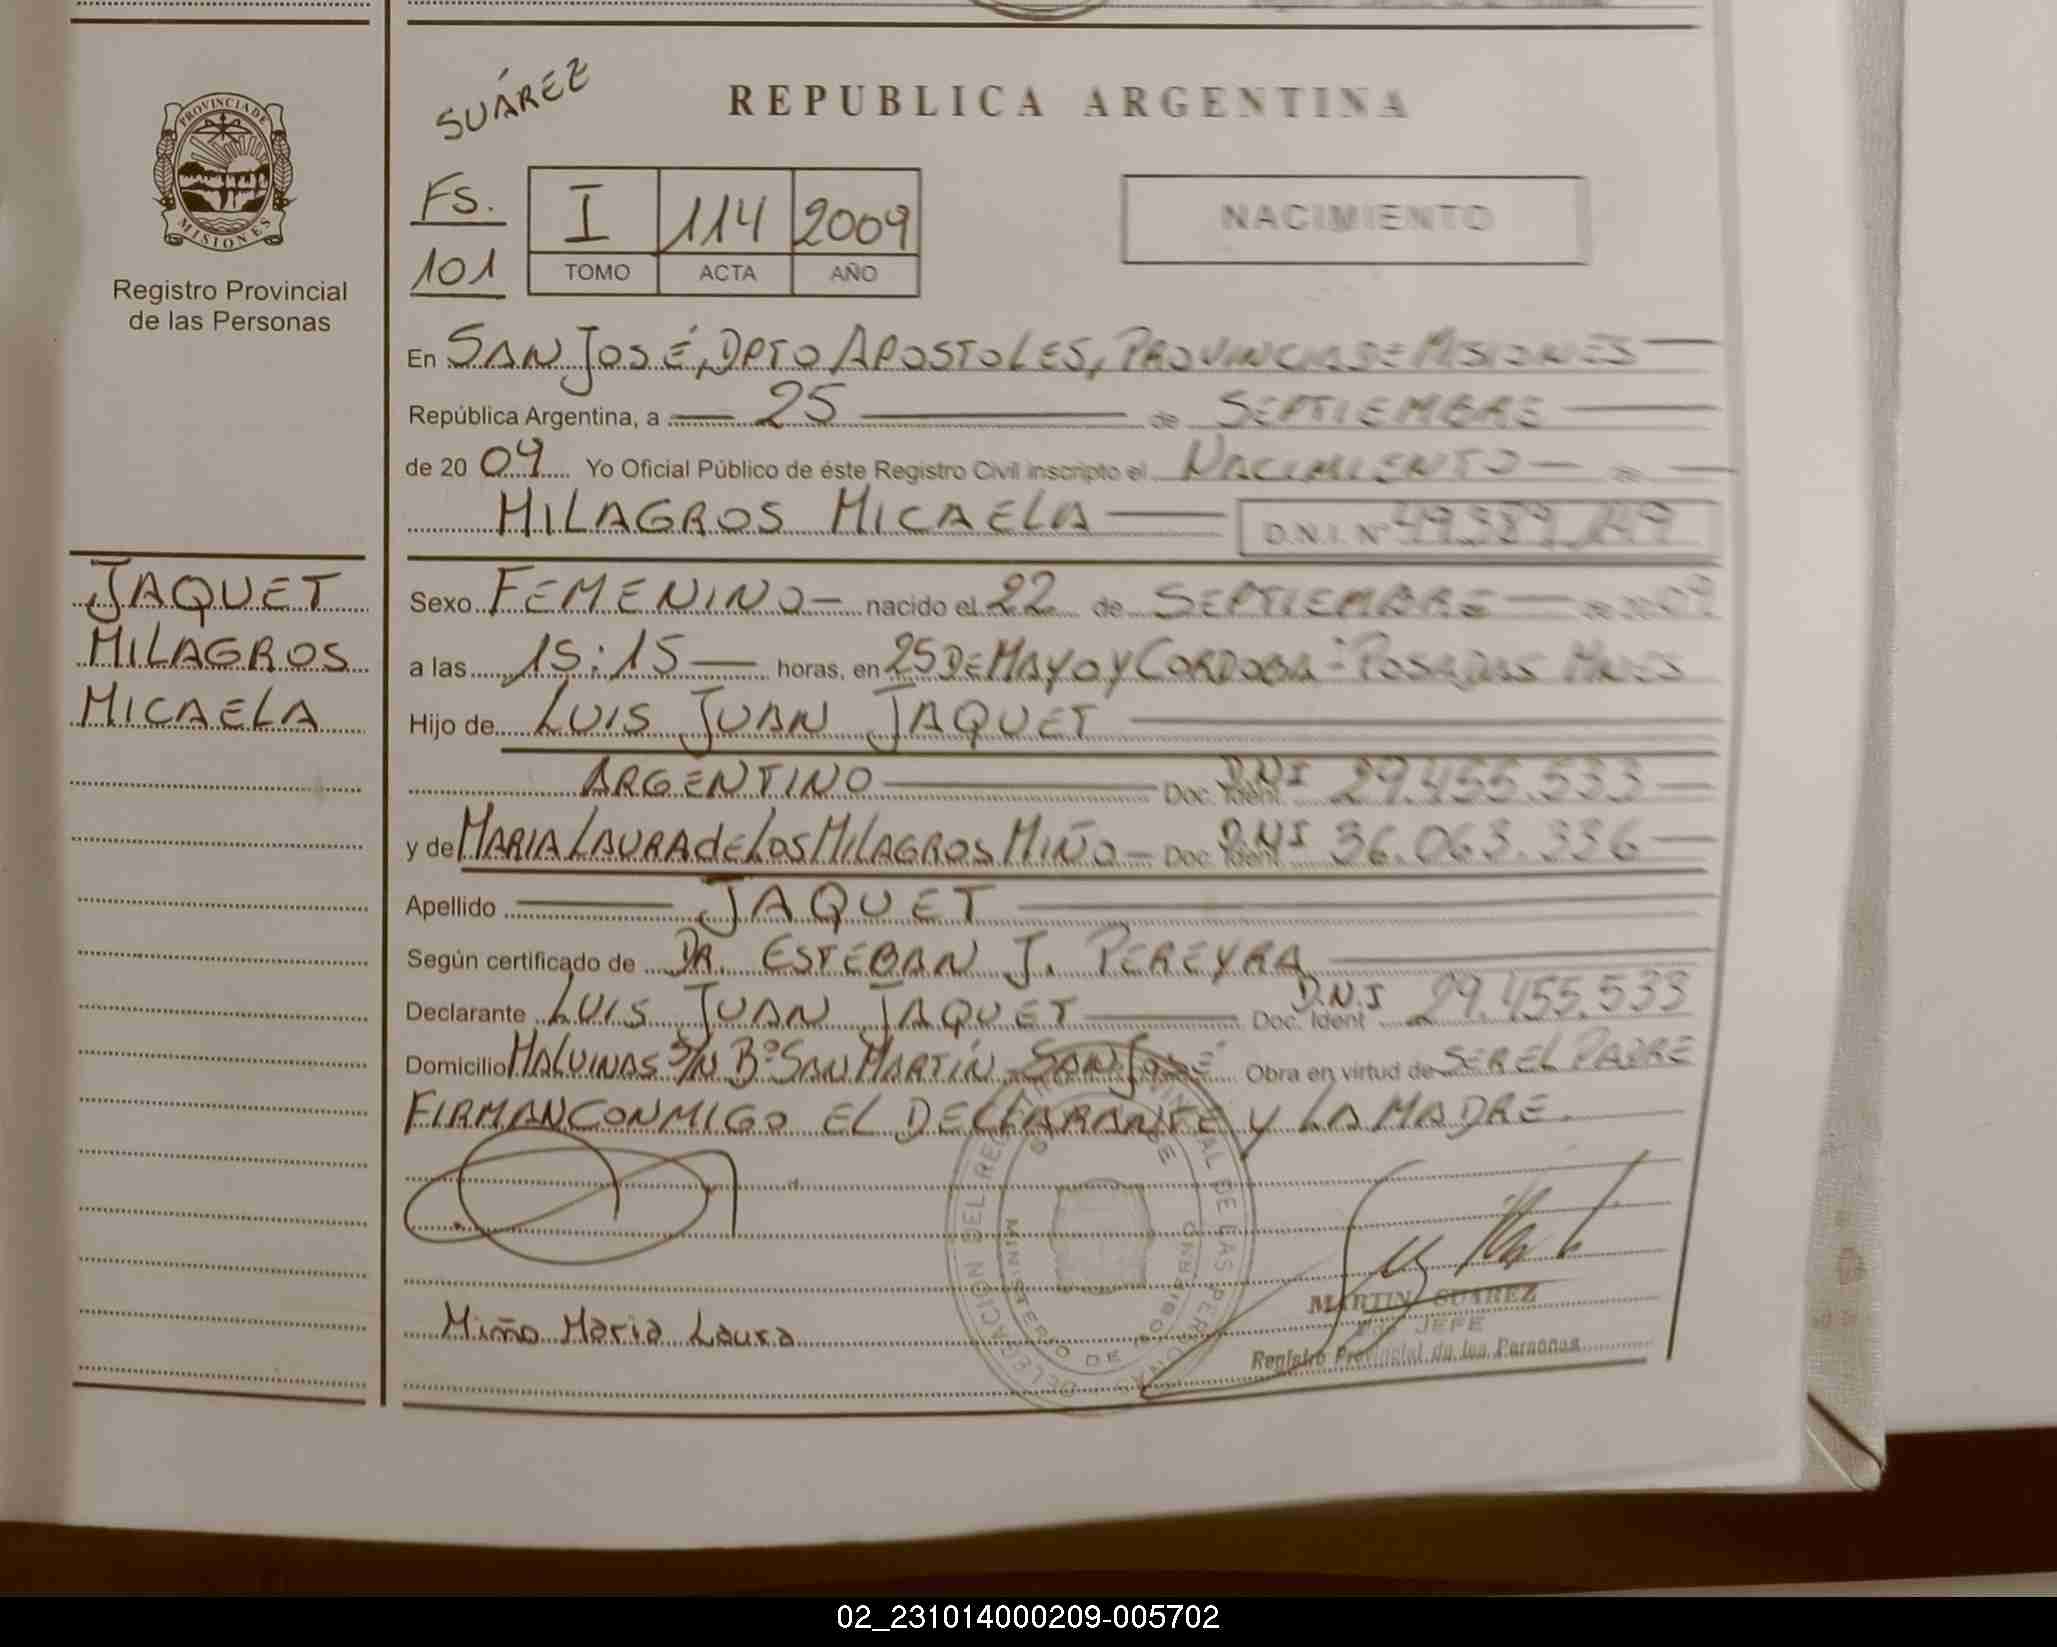 PROVINCIA DE
MISIONES
Registro Provincial
de las Personas
JAQUET
MILAGROS
MICAELA
SUÁREZ
REPUBLICA ARGENTINA
FS.
101
I 114 2009
TOMO ACTA AÑO
NACIMIENTO
En SAN JOSÉ, DPTO APOSTOLES, PROVINCIA DE MISIONES
República Argentina, a 25 de SEPTIEMBRE
de 2009 Yo Oficial Público de éste Registro Civil inscripto el NACIMIENTO de
MILAGROS MICAELA D.N.I. Nº
Sexo FEMENINO nacido el 22 de SEPTIEMBRE de 2009
a las 15:15 horas, en 25 DE MAYO Y CORDOBA - POSADAS MNES
Hijo de LUIS JUAN JAQUET
ARGENTINO Doc. Ident D.N.I 29.455.533
y de MARIA LAURA de LOS MILAGROS MIÑO Doc. Ident D.N.I 36.063.336
Apellido JAQUET
Según certificado de DR. ESTEBAN J. PEREYRA
Declarante LUIS JUAN JAQUET Doc. Ident D.N.I 29.455.533
Domicilio MALVINAS S/N Bº SAN MARTÍN - SAN JOSÉ Obra en virtud de SER EL PADRE
FIRMAN CONMIGO EL DECLARANTE Y LA MADRE.
DELEGACION DEL REGISTRO PROVINCIAL DE LAS PERSONAS
MINISTERIO DE GOBIERNO
Miño Maria Laura
MARTIN SUAREZ
JEFE
Registro Provincial de las Personas
02_231014000209-005702